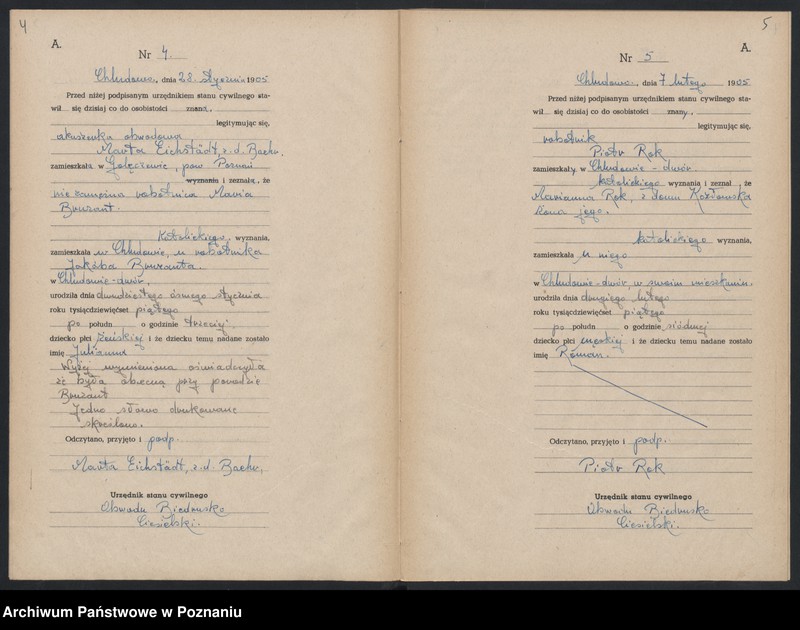 4
A.
Nr 4.
Chludowo, dnia 28 stycznia 1905
Przed niżej podpisanym urzędnikiem stanu cywilnego sta-
wił się dzisiaj co do osobistości znana,
legitymując się,
akuszerka obwodowa
Marta Eichstädt, z. d. Baehr,
zamieszkała w Golęczewie, pow. Poznań
wyznania i zeznała, że
niezamężna robotnica Maria
Bourant.
katolickiego, wyznania,
zamieszkała w Chludowie, u robotnika
Jakóba Bouranta.
w Chludowie-dwór,
urodziła dnia dwudziestego ósmego stycznia
roku tysiącdziewięćset piątego
po połudn o godzinie trzeciej
dziecko płci żeńskiej i że dziecku temu nadane zostało
imię Julianna
Wyżej wymieniona oświadczyła
że była obecną przy porodzie
Bourant
Jedno słowo drukowane
skreślono.
Odczytano, przyjęto i podp.
Marta Eichstädt, z. d. Baehr,
Urzędnik stanu cywilnego
Obwodu Biedrusko
Ciesielski.
5
A.
Nr 5
Chludowo, dnia 7 lutego 1905
Przed niżej podpisanym urzędnikiem stanu cywilnego sta-
wił się dzisiaj co do osobistości znany,
legitymując się,
robotnik
Piotr Rok
zamieszkały w Chludowie-dwór
katolickiego wyznania i zeznał że
Marianna Rok, z domu
żona jego.
katolickiego wyznania,
zamieszkała u niego
w Chludowie-dwór, w swoim mieszkaniu.
urodziła dnia drugiego lutego
roku tysiącdziewięćset piątego
po połudn o godzinie siódmej
dziecko płci męskiej i że dziecku temu nadane zostało
imię Roman.
Odczytano, przyjęto i podp.
Piotr Rok
Urzędnik stanu cywilnego
Obwodu Biedrusko
Ciesielski.
Archiwum Państwowe w Poznaniu